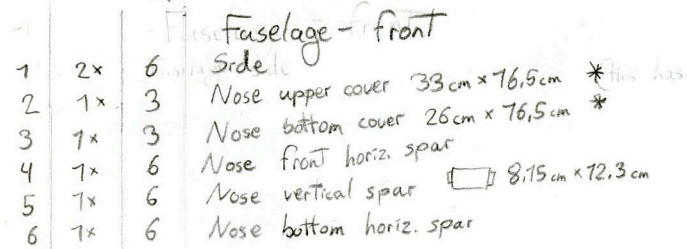 Fuselage - front
1 2x 6 Side
2 1x 3 Nose upper cover 33cm x 16,5cm *
3 1x 3 Nose bottom cover 26cm x 16,5cm *
4 1x 6 Nose front horiz. spar
5 1x 6 Nose vertical spar 8.15cm x 12.3cm
6 1x 6 Nose bottom horiz. spar